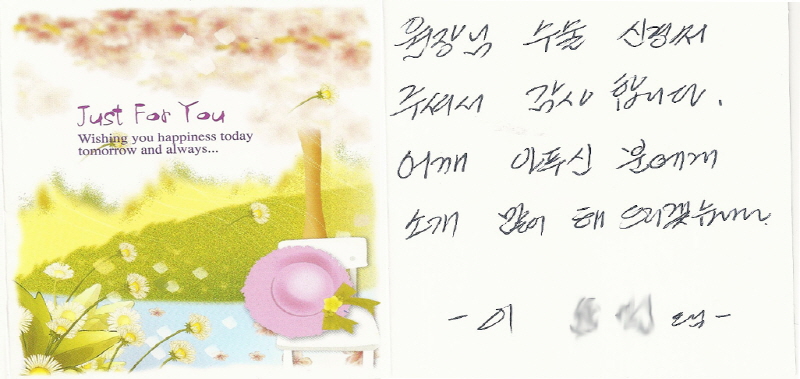 Just For You
Wishing you happiness today
tomorrow and always...
원장님 수술 신경써
주셔서 감사 합니다.
어깨 아프신 분에게
소개 많이 해 드리겠습니다.
- 이 님 -